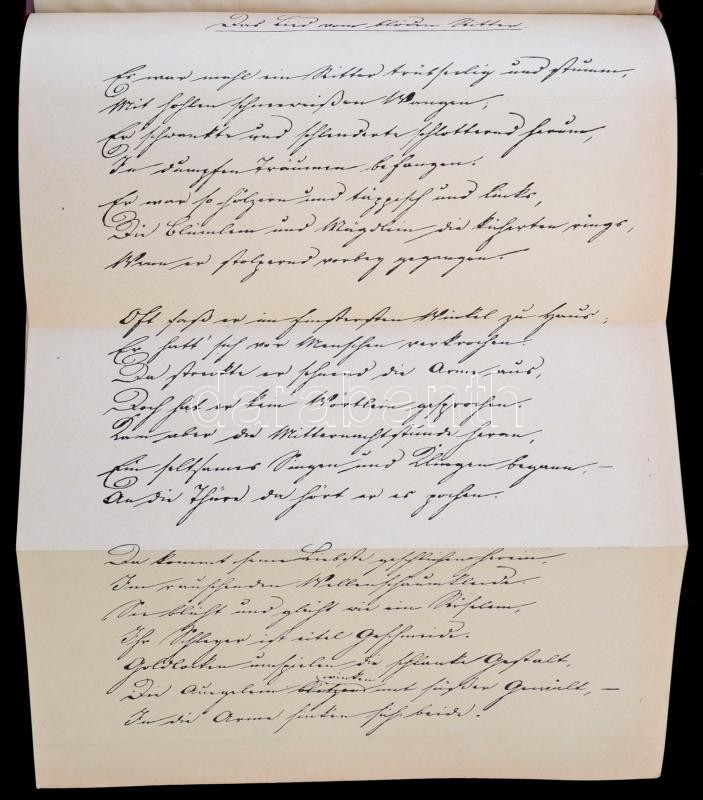 Das Lied vom blöden Ritter.
Es war mahl ein Ritter trübseelig und stumm,
Mit hohlen schneeweißen Wangen;
Er schwankte und schlenderte schlotternd herum,
In dumpfen Träumen befangen.
Er war so hölzern und täppisch und links,
Die Blümlein und Mägdlein die kicherten rings,
Wenn er stolpernd vorbey gegangen.
Oft saß er im finstersten Winkel zu Haus;
Er hatt' sich vor Menschen verkrochen.
Da streckte er sehnend die Arme aus,
Doch hat er kein Wörtlein gesprochen.
Kam aber die Mitternachtstunde heran,
Ein seltsames Singen und Klingen begann, –
An die Thüre da hört er es pochen.
Da kommt seine Liebste geschlichen herein,
Im rauschenden Wellenschaumkleide.
Sie blüht und glüht wie ein Röselein,
Ihr Schleyer ist eitel Geschmeide.
Goldlocken umspielen die schlanke Gestalt,
winken
Die Äugelein blitzen mit süßer Gewalt, –
In die Arme sinken sich beide.
darabanth